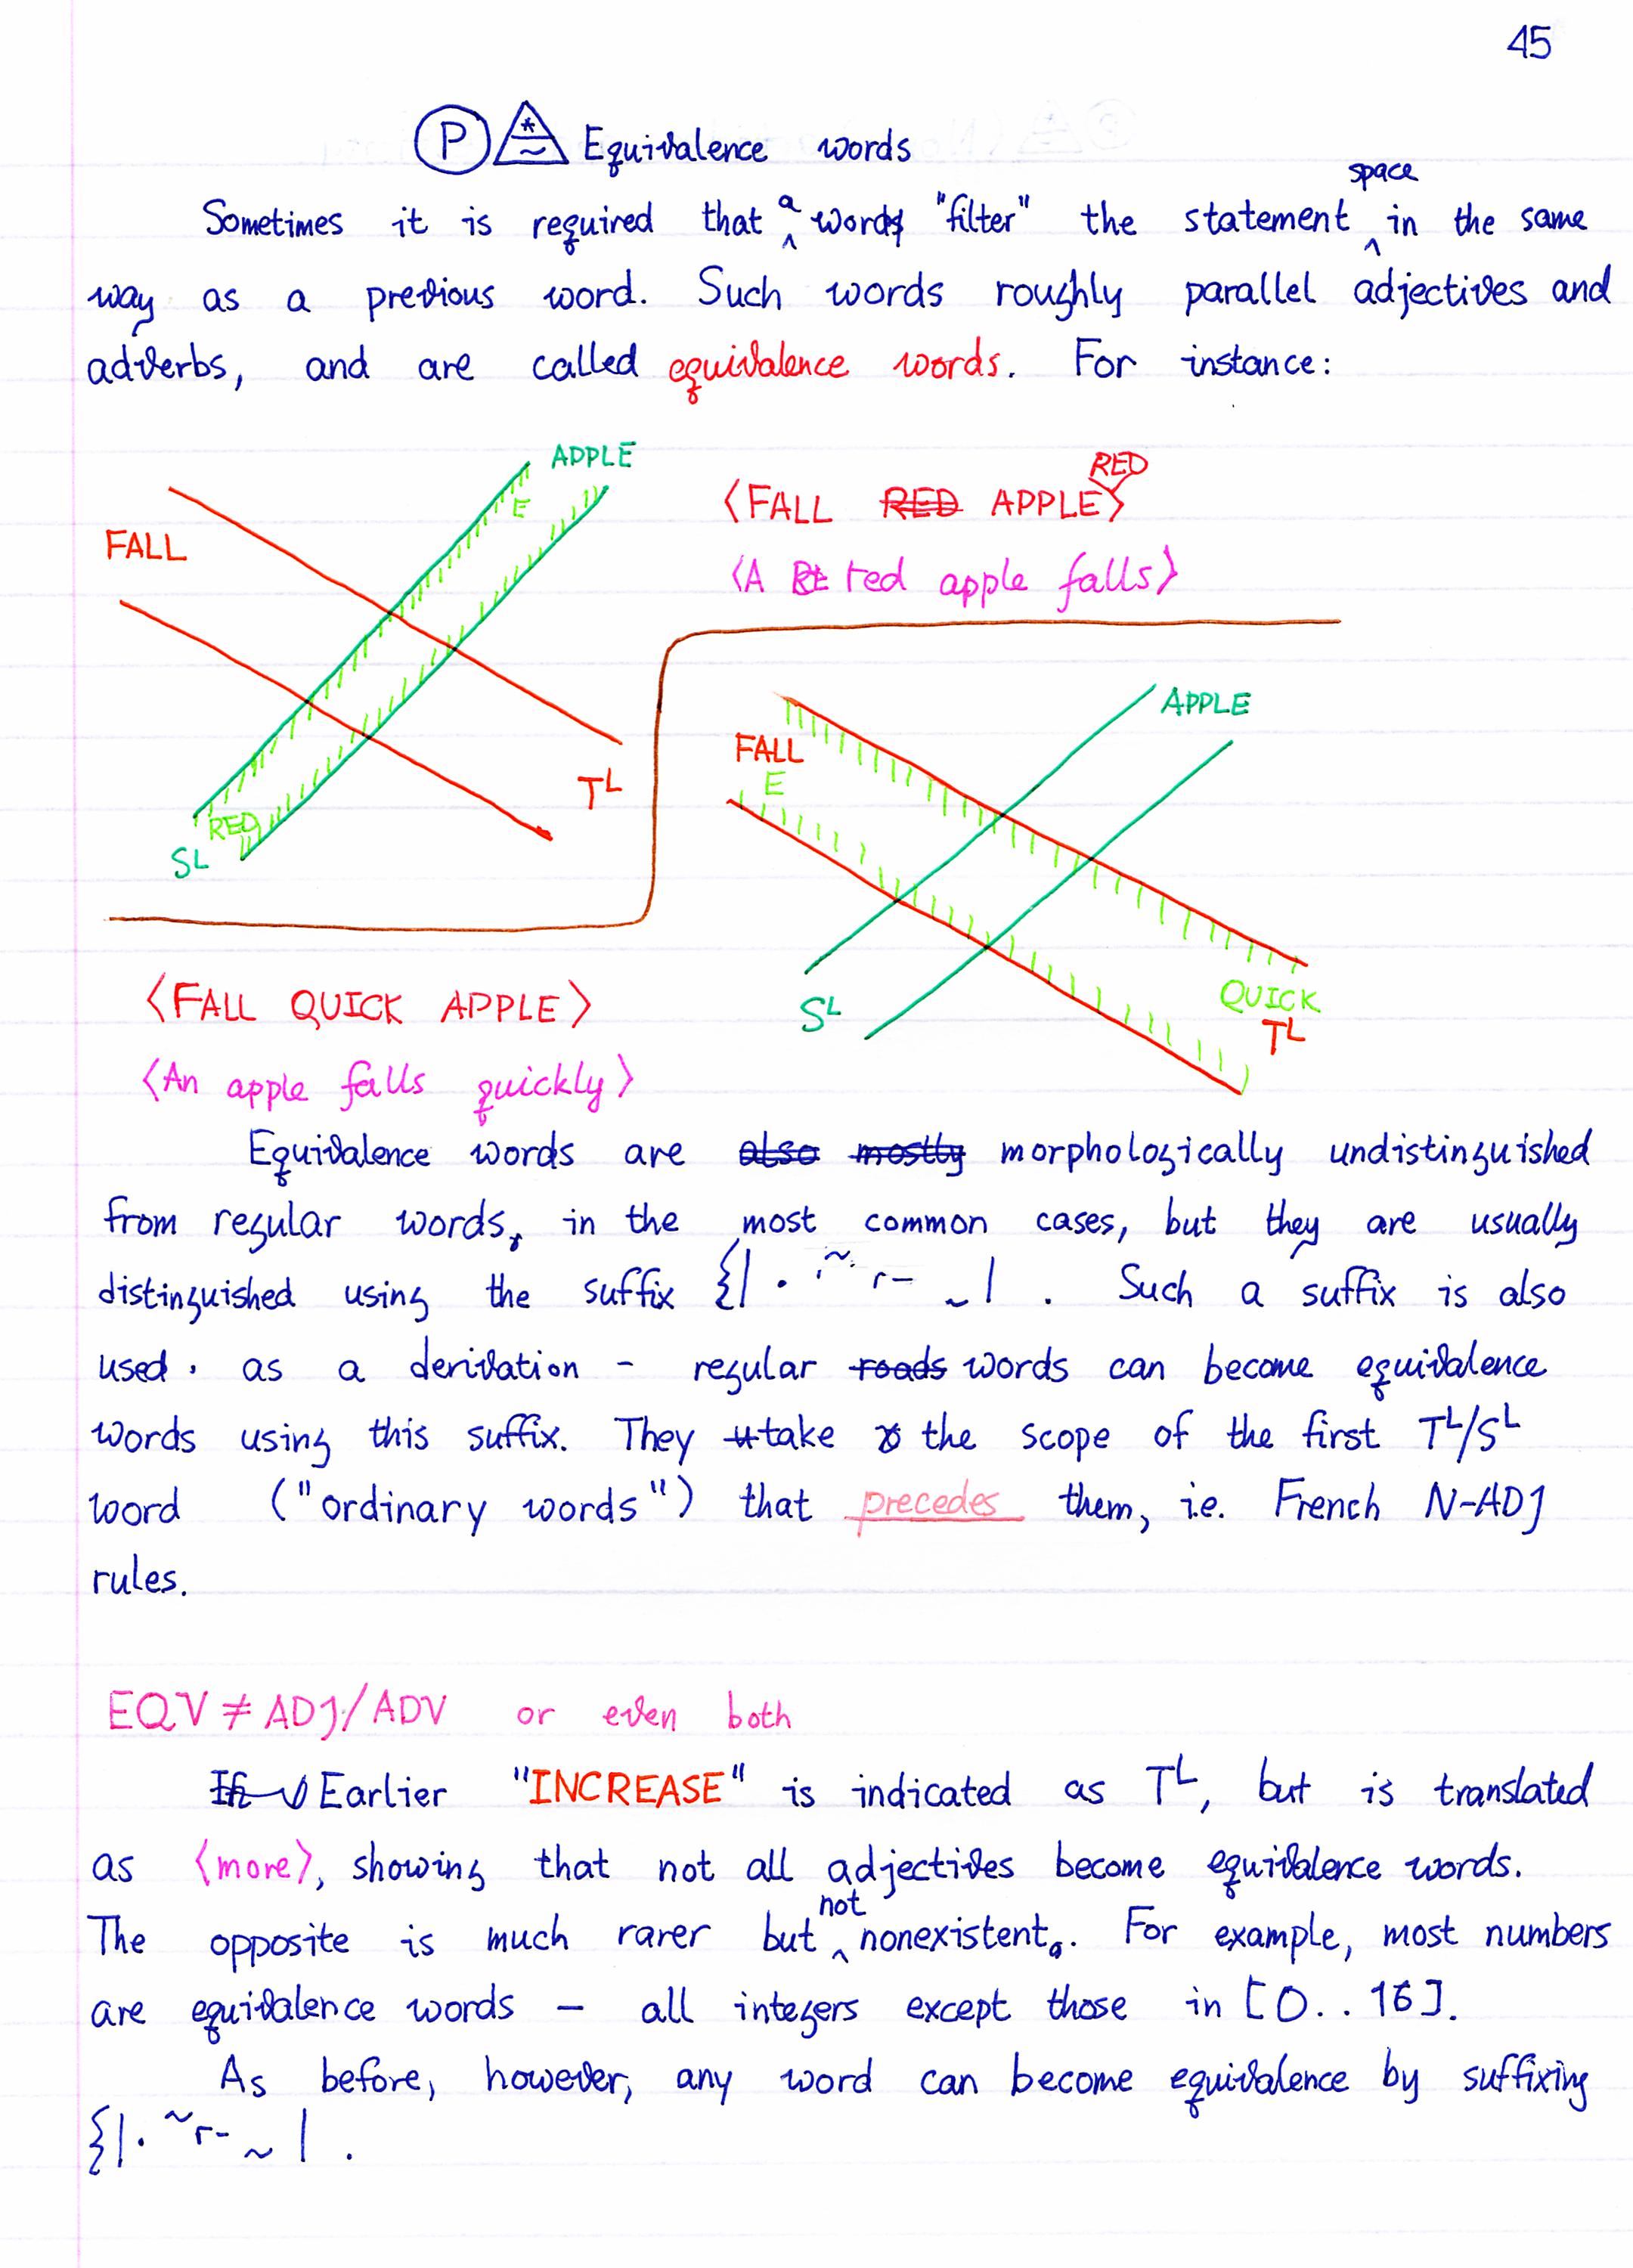 45
P * ~ Equivalence words
space
Sometimes it is required that ^a word "filter" the statement ^ in the same
way as a previous word. Such words roughly parallel adjectives and
adverbs, and are called equivalence words. For instance:
APPLE
E
FALL
RED
SL
TL
RED
⟨FALL RED APPLE⟩
⟨A Re red apple falls⟩
APPLE
FALL
E
SL
QUICK
TL
⟨FALL QUICK APPLE⟩
⟨An apple falls quickly⟩
Equivalence words are also mostly morphologically undistinguished
from regular words, in the most common cases, but they are usually
distinguished using the suffix {|· ~ r- ~ | . Such a suffix is also
used. as a derivation - regular roads words can become equivalence
words using this suffix. They take the scope of the first TL/SL
word ("ordinary words") that precedes them, i.e. French N-ADJ
rules.
EQV ≠ ADJ/ADV or even both
Earlier "INCREASE" is indicated as TL, but is translated
as ⟨more⟩, showing that not all adjectives become equivalence words.
not
The opposite is much rarer but ^ nonexistent. For example, most numbers
are equivalence words - all integers except those in [0..16].
As before, however, any word can become equivalence by suffixing
{|· ~ r- ~ | .